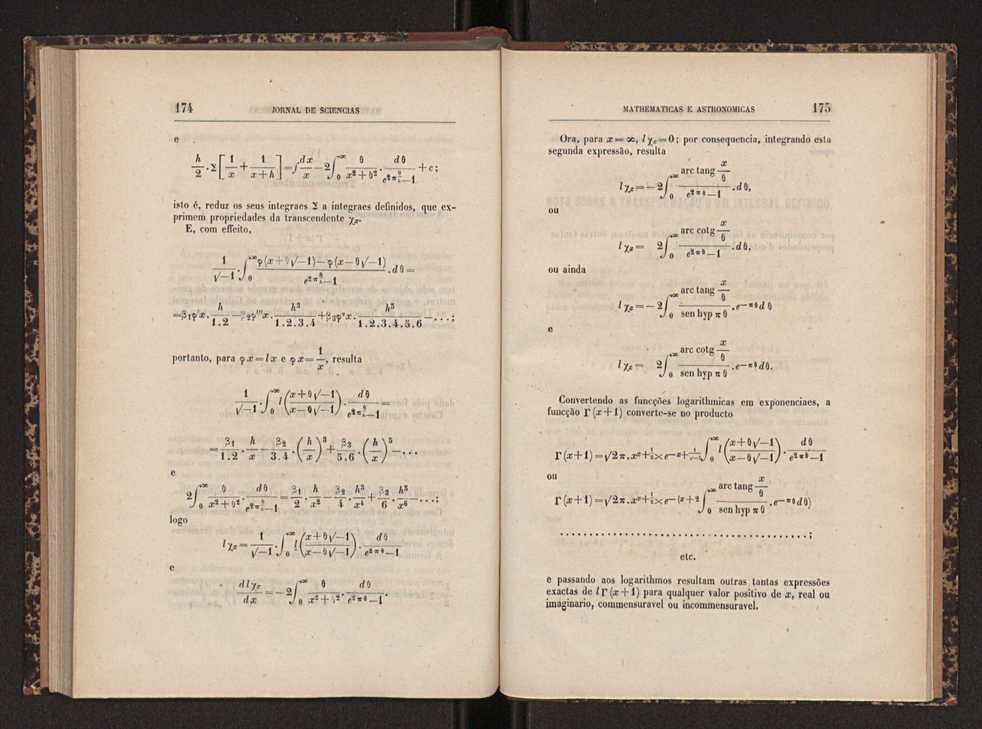 174 JORNAL DE SCIENCIAS
e
h/2 . Σ [ 1/x + 1/(x+h) ] = ∫ dx/x − 2 ∫₀^∞ θ/(x²+θ²) . dθ/(e^{2πθ/h}−1) + c;
isto é, reduz os seus integraes Σ a integraes definidos, que ex-
primem propriedades da transcendente χₓ.
E, com effeito,
1/√−1 . ∫₀^∞ (φ(x+θ√−1)−φ(x−θ√−1))/(e^{2πθ/h}−1) . dθ =
=β₁φ'x. h/1.2 − β₂φ'''x. h³/1.2.3.4 + β₃φᵛx. h⁵/1.2.3.4.5.6 − . . . ;
portanto, para φx=lx e φx= 1/x, resulta
1/√−1 . ∫₀^∞ l((x+θ√−1)/(x−θ√−1)) . dθ/(e^{2πθ/h}−1) =
= β₁/1.2 . h/x − β₂/3.4 . (h/x)³ + β₃/5.6 . (h/x)⁵ − . . .
e
2 ∫₀^∞ θ/(x²+θ²) . dθ/(e^{2πθ/h}−1) = β₁/2 . h/x² − β₂/4 . h³/x⁴ + β₃/6 . h⁵/x⁶ − . . . ;
logo
lχₓ = 1/√−1 . ∫₀^∞ l((x+θ√−1)/(x−θ√−1)) . dθ/(e^{2πθ}−1)
e
dlχₓ/dx = −2 ∫₀^∞ θ/(x²+θ²) . dθ/(e^{2πθ}−1).
MATHEMATICAS E ASTRONOMICAS 175
Ora, para x=∞, lχₓ=0; por consequencia, integrando esta
segunda expressão, resulta
lχₓ=−2 ∫₀^∞ (arc tang x/θ)/(e^{2πθ}−1) . dθ,
ou
lχₓ= 2 ∫₀^∞ (arc cotg x/θ)/(e^{2πθ}−1) . dθ,
ou ainda
lχₓ=−2 ∫₀^∞ (arc tang x/θ)/(sen hyp πθ) . e^{−πθ}dθ
e
lχₓ= 2 ∫₀^∞ (arc cotg x/θ)/(sen hyp πθ) . e^{−πθ}dθ.
Convertendo as funcções logarithmicas em exponenciaes, a
funcção Γ(x+1) converte-se no producto
Γ(x+1)=√2π.x^{x+½}×e^{−x+1/√−1 ∫₀^∞ l((x+θ√−1)/(x−θ√−1)) . dθ/(e^{2πθ}−1)}
ou
Γ(x+1)=√2π.x^{x+½}×e^{−(x+2 ∫₀^∞ (arc tang x/θ)/(sen hyp πθ) . e^{−πθ}dθ)}
. . . . . . . . . . . . . . . . . . . . . . . . . . . . . . . . . . . . . . . . ;
etc.
e passando aos logarithmos resultam outras tantas expressões
exactas de lΓ(x+1) para qualquer valor positivo de x, real ou
imaginario, commensuravel ou incommensuravel.